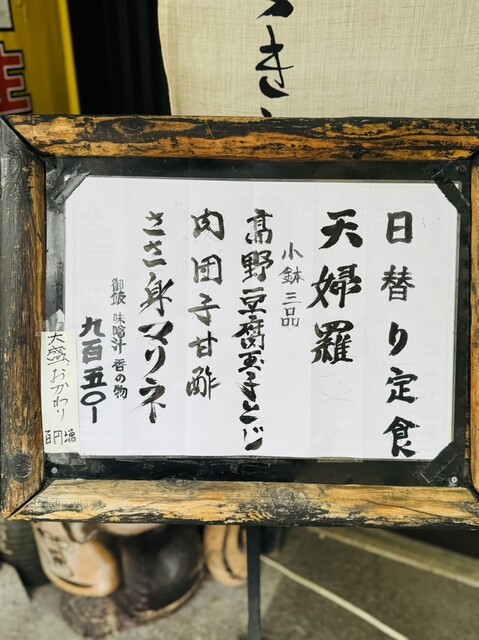 日替り定食
天婦羅
小鉢三品
高野豆腐玉子とじ
肉団子甘酢
ささ身マリネ
御飯 味噌汁 香の物
九百五〇一
大盛おかわり
百円増
き